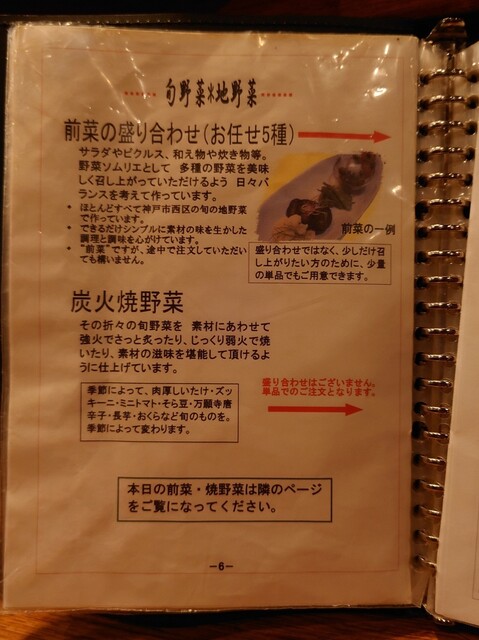 旬野菜*地野菜
前菜の盛り合わせ(お任せ5種)
サラダやピクルス、和え物や炊き物等。
野菜ソムリエとして 多種の野菜を美味
しく召し上がっていただけるよう 日々バ
ランスを考えて作っています。
・ほとんどすべて神戸市西区の旬の地野菜
で作っています。
・できるだけシンプルに素材の味を生かした
調理と調味を心がけています。
・“前菜”ですが、途中で注文していただいて
も構いません。
前菜の一例
盛り合わせではなく、少しだけ召
し上がりたい方のために、少量
の単品でもご用意できます。
炭火焼野菜
その折々の旬野菜を 素材にあわせて
強火でさっと炙ったり、じっくり弱火で焼
いたり、素材の滋味を堪能して頂けるよ
うに仕上げています。
季節によって、肉厚しいたけ・ズッ
キーニ・ミニトマト・そら豆・万願寺唐
辛子・長芋・おくらなど旬のものを。
季節によって変わります。
盛り合わせはございません。
単品でのご注文となります。
本日の前菜・焼野菜は隣のページ
をご覧になってください。
－6－